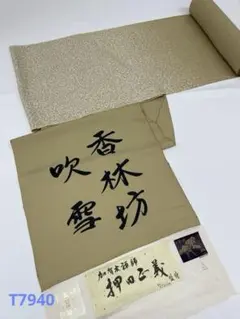 香林坊
吹雪
加賀友禅師
押田正義
T7940